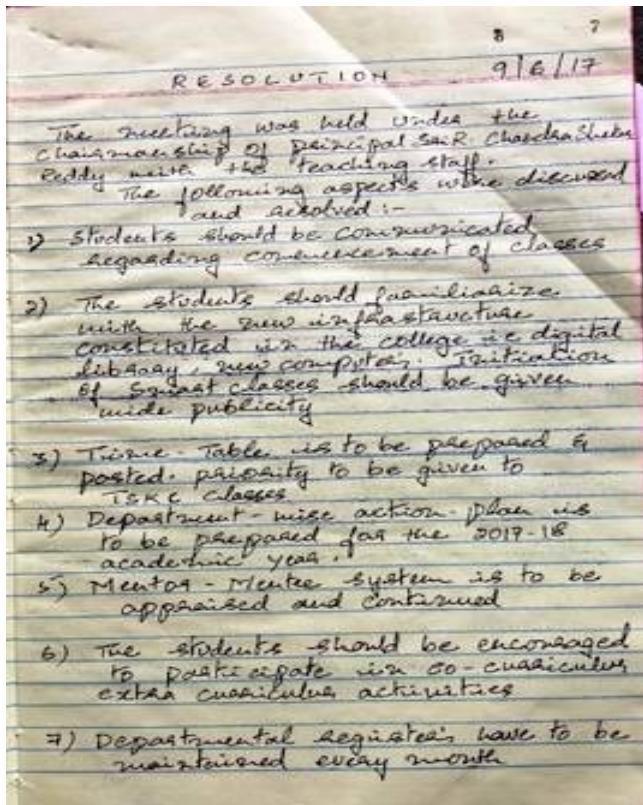 8 7
RESOLUTION 9/6/17
The meeting was held under the
chairmanship of principal Sri R. Chandra Sheker
Reddy with the teaching staff.
The following aspects were discussed
and resolved :-
1) Students should be communicated
regarding commencement of classes
2) The students should familiarize
with the new infrastructure
constituted in the college ie digital
library, new computers, Initiation
of Smart classes should be given
wide publicity
3) Time-Table is to be prepared &
posted. priority to be given to
TSKC classes
4) Department-wise action-plan is
to be prepared for the 2017-18
academic year.
5) Mentor-Mentee system is to be
appraised and continued
6) The students should be encouraged
to participate in co-curricular
extra curricular activities
7) Departmental registers have to be
maintained every month